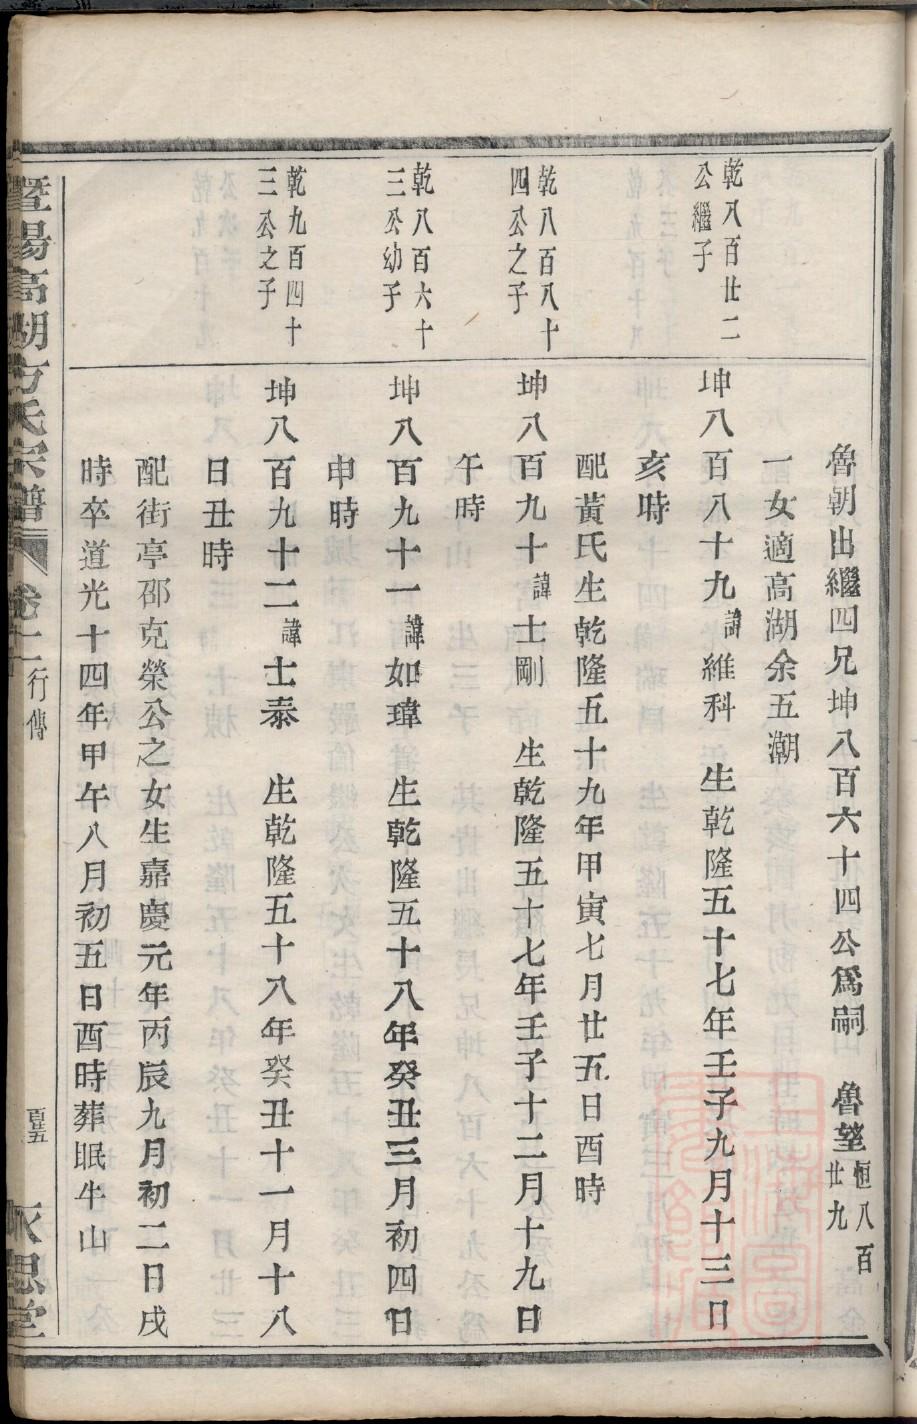 魯朝出繼四兄坤八百六十四公爲嗣 魯塋恒八百廿九
一女適高湖余五潮
乾八百廿二公繼子
坤八百八十九諱維科 生乾隆五十七年壬子九月十三日
亥時
配黃氏生乾隆五十九年甲寅七月廿五日酉時
乾八百八十四公之子
坤八百九十諱士剛 生乾隆五十七年壬子十二月十九日
午時
乾八百六十三公幼子
坤八百九十一諱如瑋 生乾隆五十八年癸丑三月初四日
申時
乾九百四十三公之子
坤八百九十二諱士泰 生乾隆五十八年癸丑十一月十八
日丑時
配街亭邵克榮公之女生嘉慶元年丙辰九月初二日戌
時卒道光十四年甲午八月初五日酉時葬眠牛山
暨陽高湖方氏宗譜 卷十 行傳 永思堂